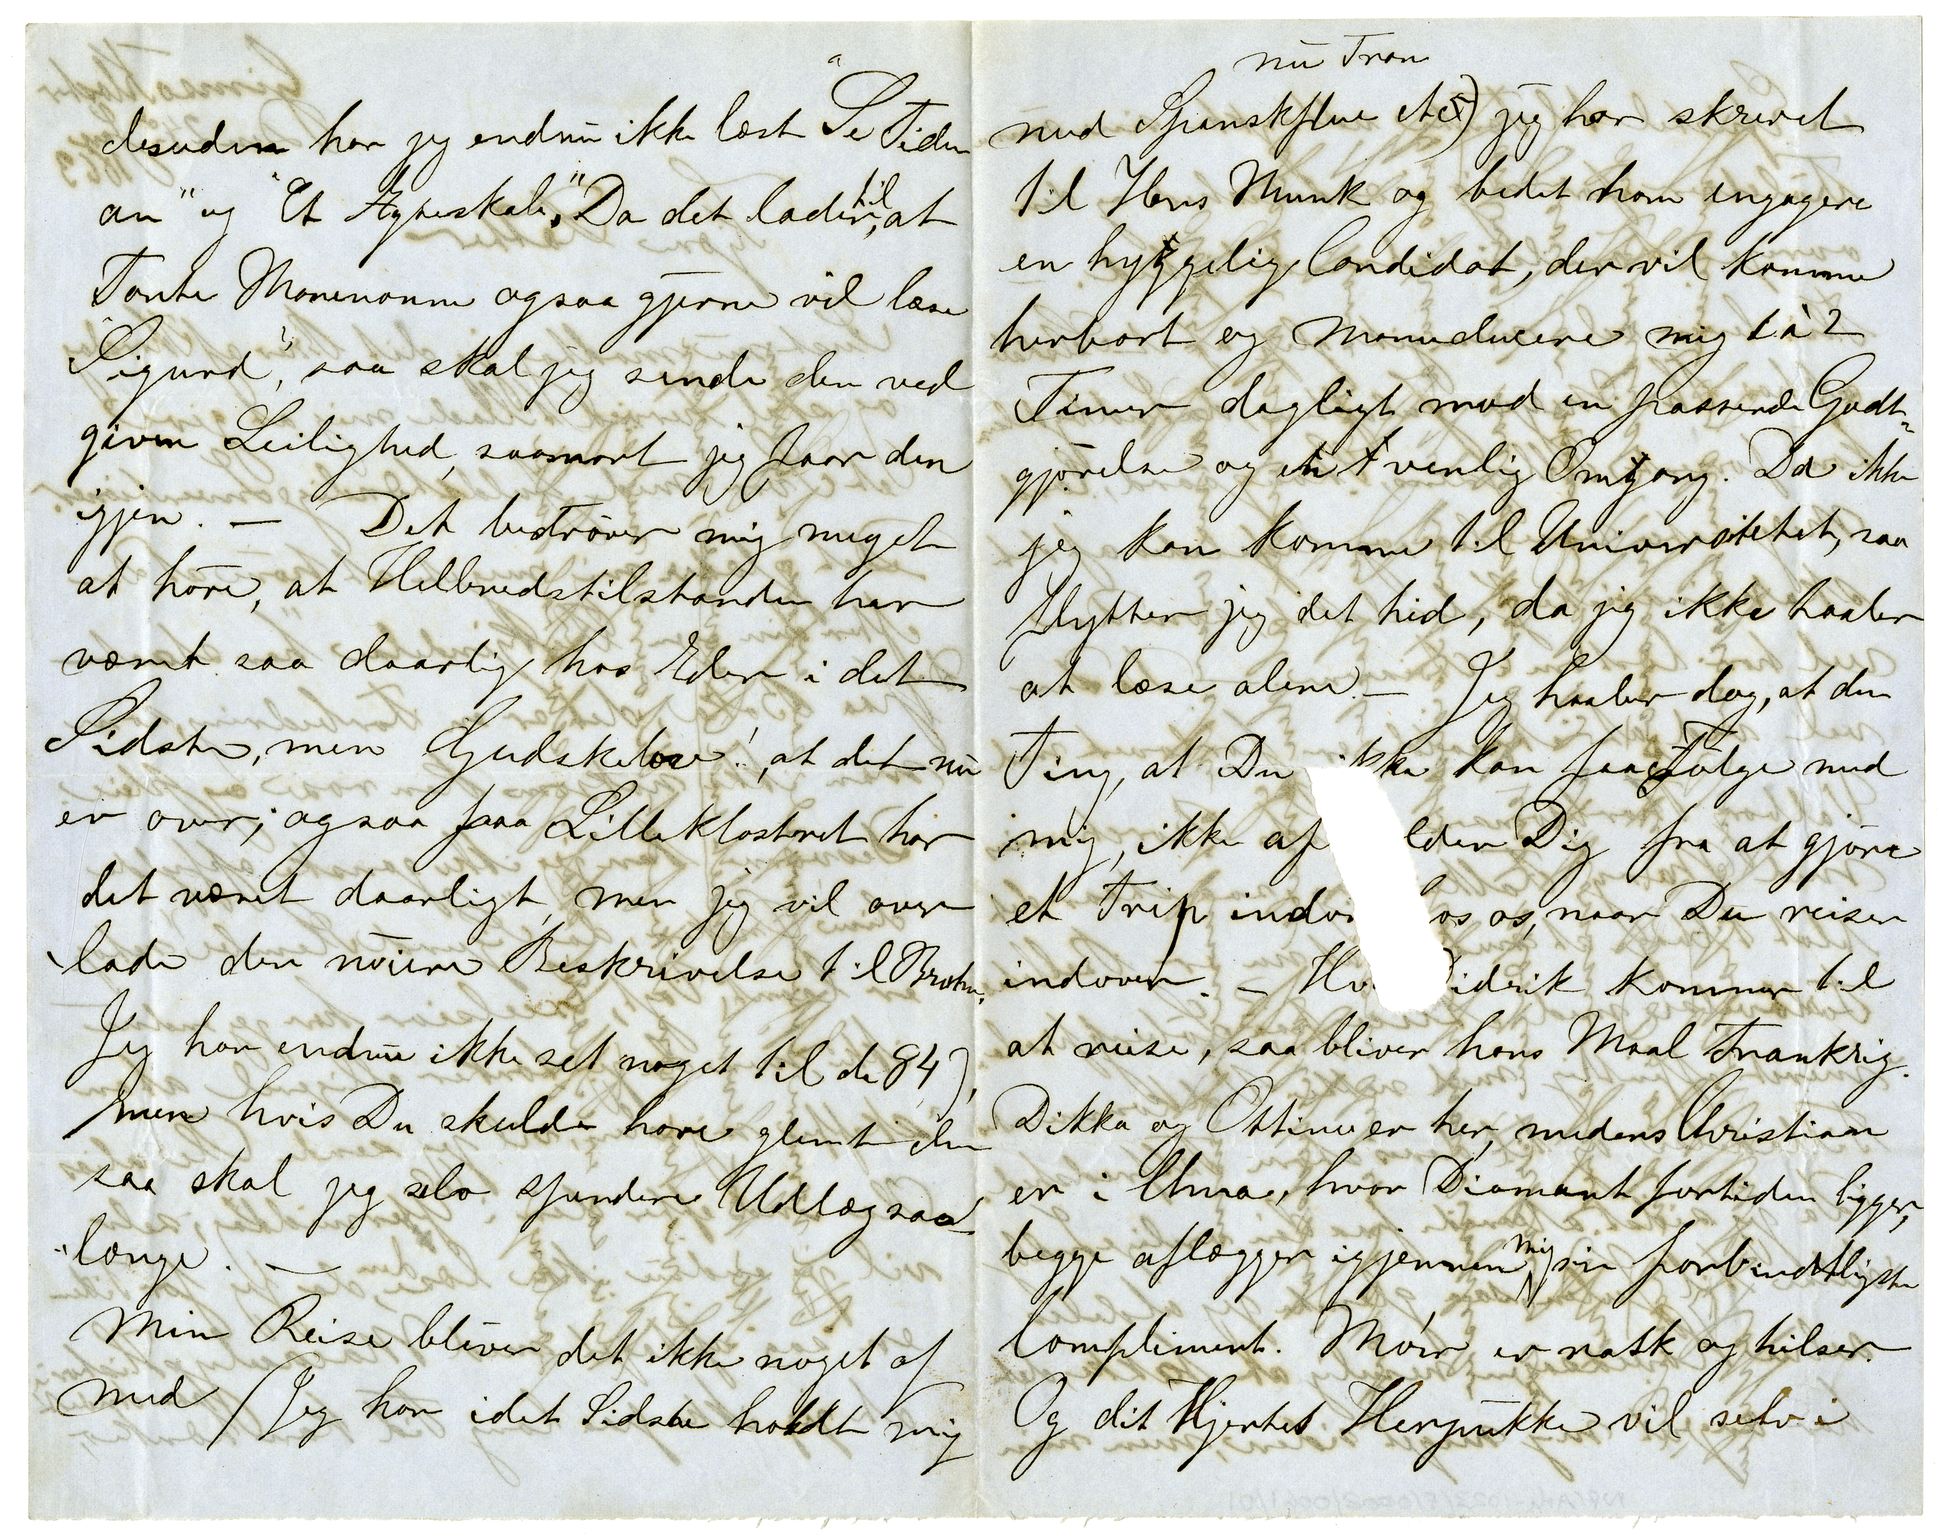 desuden har jeg endnu ikke læst "Se Tiden
an" og "Et Ægteskab," Da det lader til, at
Tante Monemanne ogsaa gjerne vil læse
"Sigurd", saa skal jeg sende den ved
given Leilighed, saasnart jeg faar den
igjen. — Det bedrøver mig meget
at høre, at Helbredstilstanden har
været saa daarlig hos Eder i det
Sidste, men Gudskelov!, at det nu
er over; ogsaa paa Lilleklosteret har
det været daarligt, men jeg vil over
lade den nöiere Beskrivelse til Brohm.
Jeg har endnu ikke set noget til de 84),
men hvis Du skulde have glemt den
saa skal jeg selv spendere Udlæg saa
længe. —
Min Reise bliver det ikke noget af
med / Jeg har i det Sidste holdt mig
nu Tran
med Spanskflue etc) jeg har skrevet
til Hans Munk og bedet ham engagere
en hyggelig Candidat, der vil komme
herbort og manuducere mig 1 à 2
Timer dagligt mod en passende Godt-
gjørelse og en venlig Omgang. Da ikke
jeg kan komme til Universitetet, saa
flytter jeg det hid, da jeg ikke taaler
at læse alene. — Jeg haaber dog, at den
Ting, at Du ikke kan faae Følge med
mig, ikke af lder Dig fra at gjøre
et Trip indo os os, naar Du reiser
indover. — Hv idrik kommer til
at reise, saa bliver hans Maal Frankrig.
Dikka og Ottine er her, medens Christian
er i Unra, hvor Diamant fortiden ligger,
begge aflægger igjennem mig sin forbindtligste
Compliment. Moer er rask og hilser.
Og dit Hjertes Herpukke vil selv i